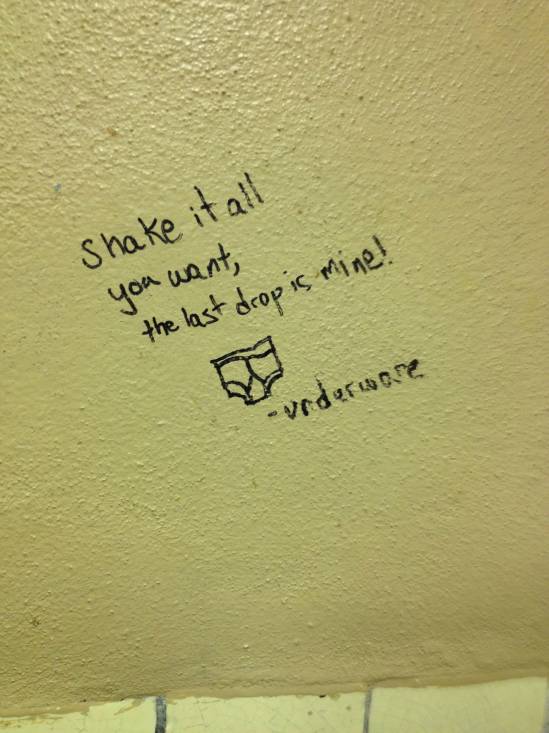 Shake it all
you want,
the last drop is mine!
-underware